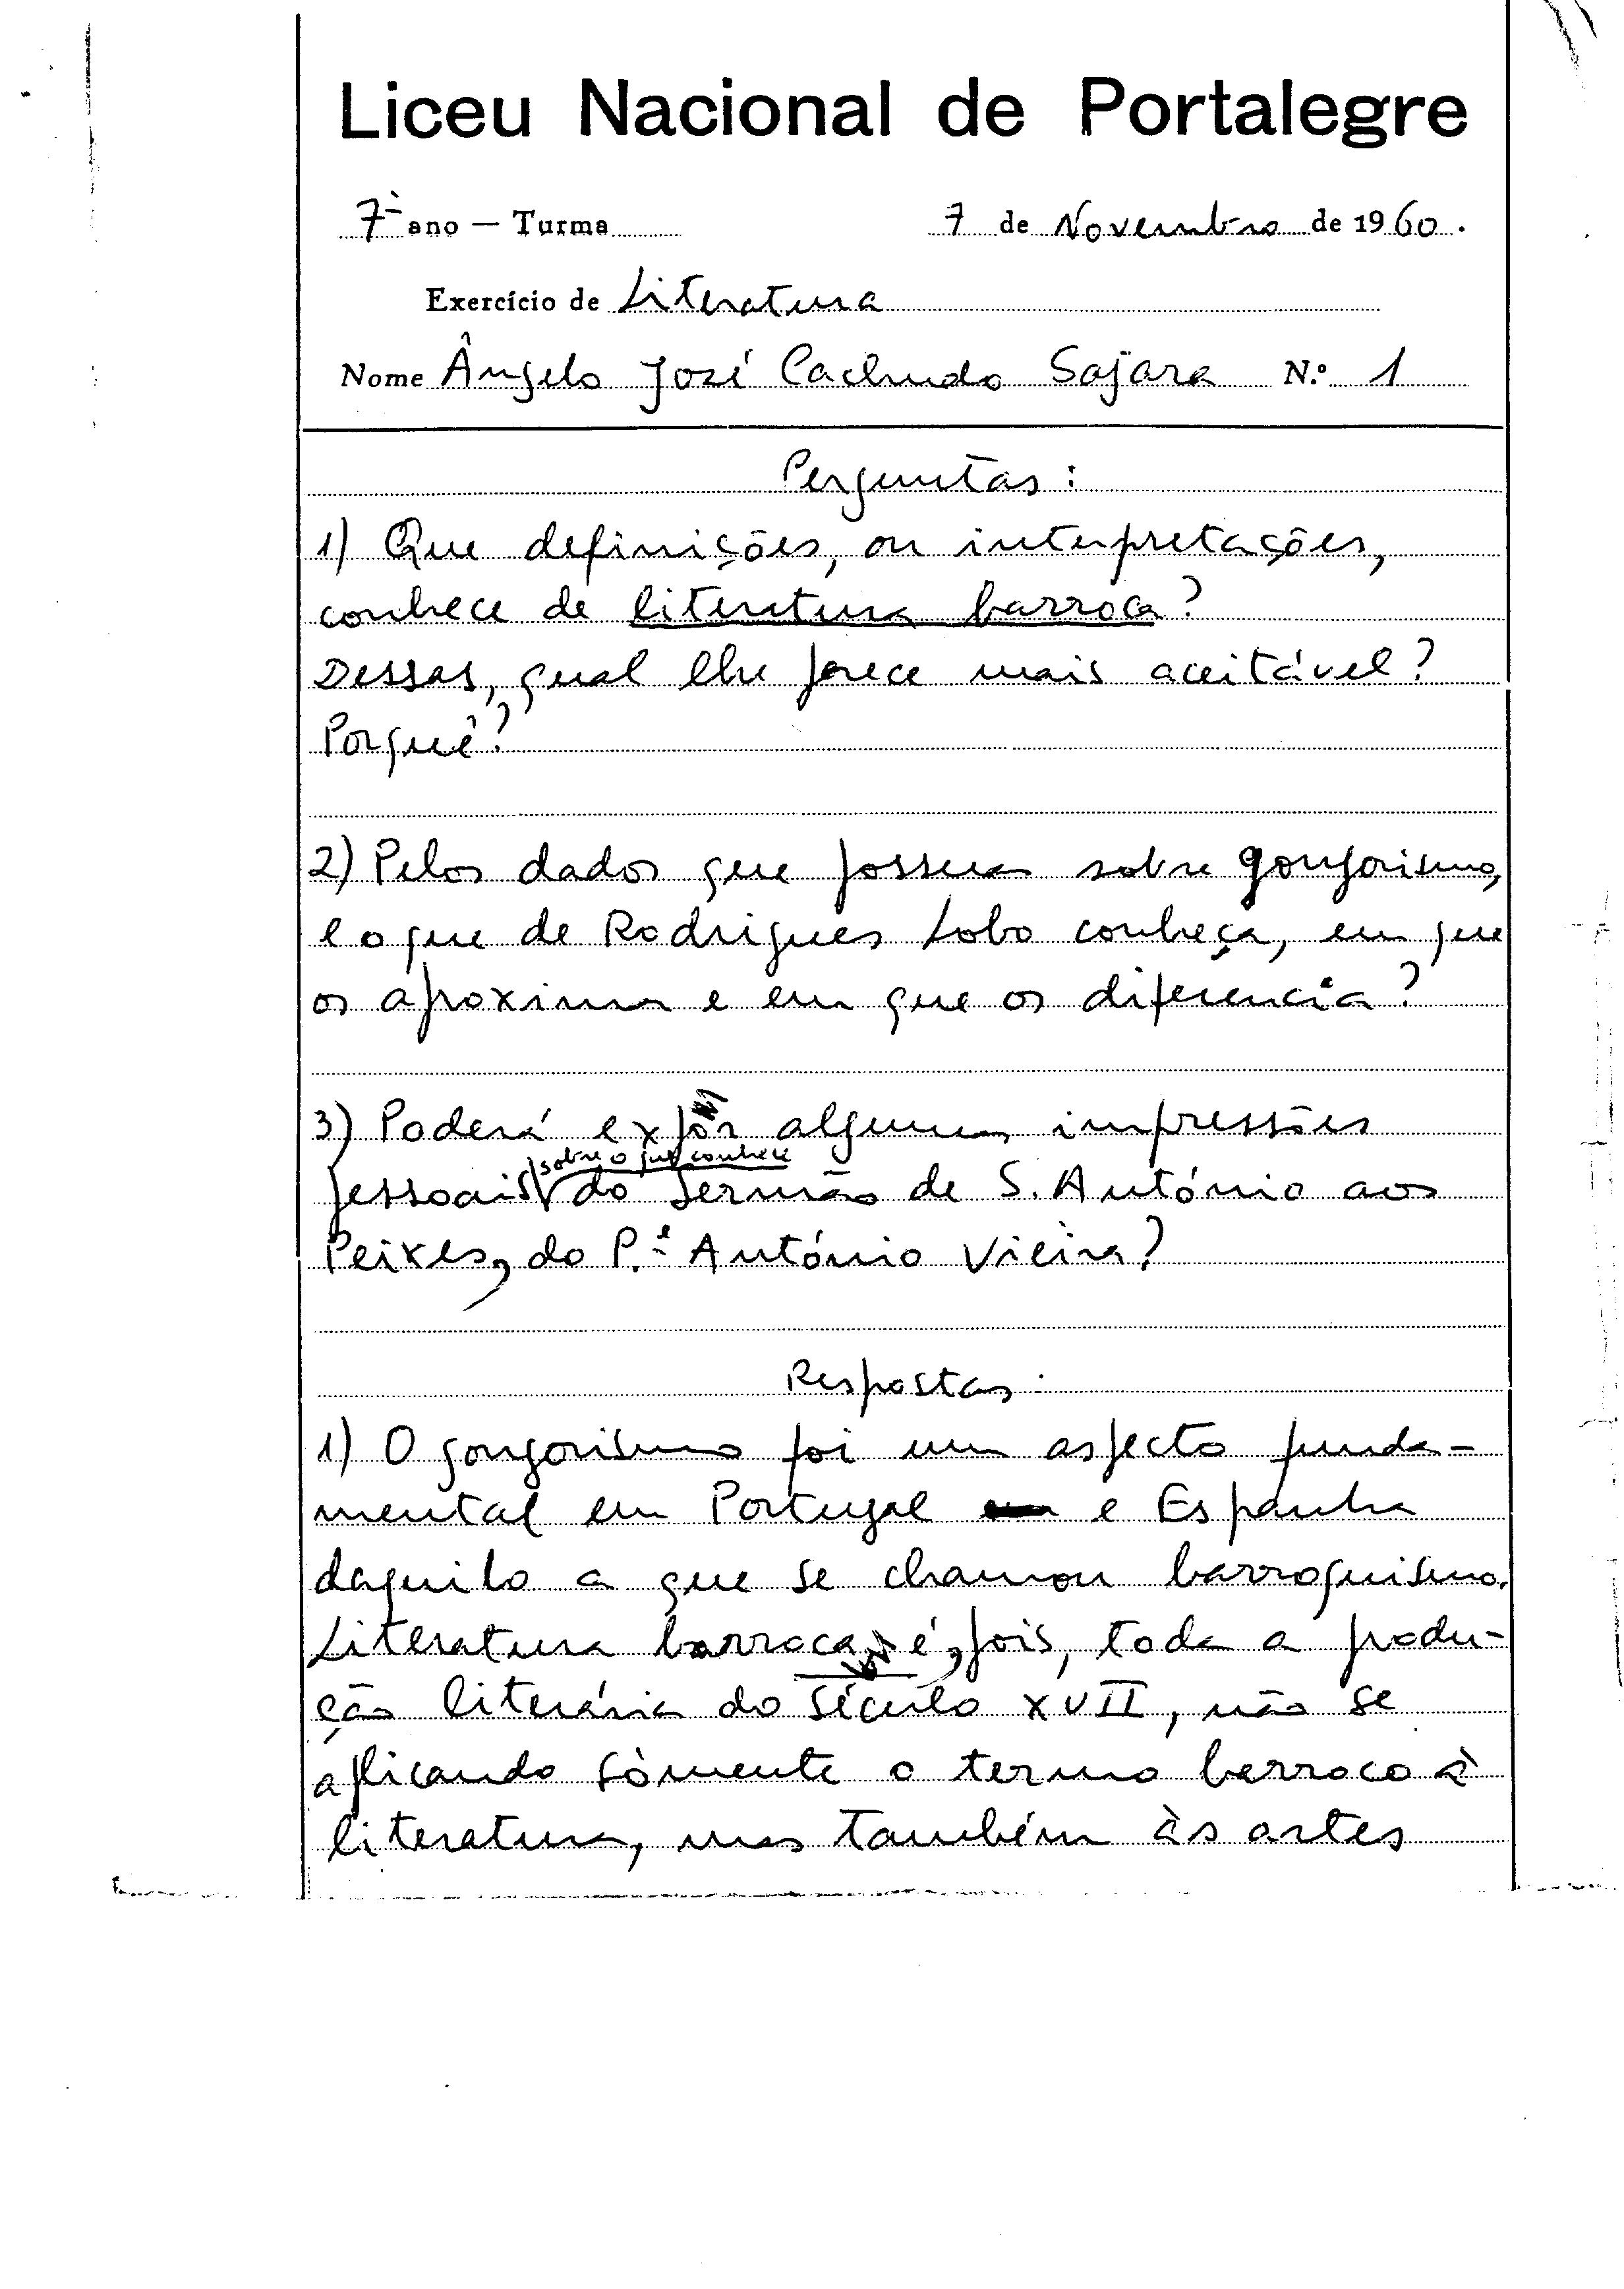 Liceu Nacional de Portalegre
7º ano — Turma
7 de Novembro de 1960.
Exercício de Literatura
Nome Ângelo José Cachudo Sajara N.º 1
Perguntas:
1) Que definições, ou interpretações,
conhece de literatura barroca?
Dessas, qual lhe parece mais aceitável?
Porquê?
2) Pelos dados que possua sobre gongorismo,
e o que de Rodrigues Lobo conheça, em que
os aproxima e em que os diferencia?
3) Poderá expôr algumas impressões
sobre o que conhece
pessoais do Sermão de S. António aos
Peixes, do P.e António Vieira?
Respostas:
1) O gongorismo foi um aspecto funda-
mental em Portugal e Espanha
daquilo a que se chamou barroquismo.
Literatura barroca é, pois, toda a produ-
ção literária do século XVII, não se
aplicando sòmente o termo barroco à
literatura, mas também às artes